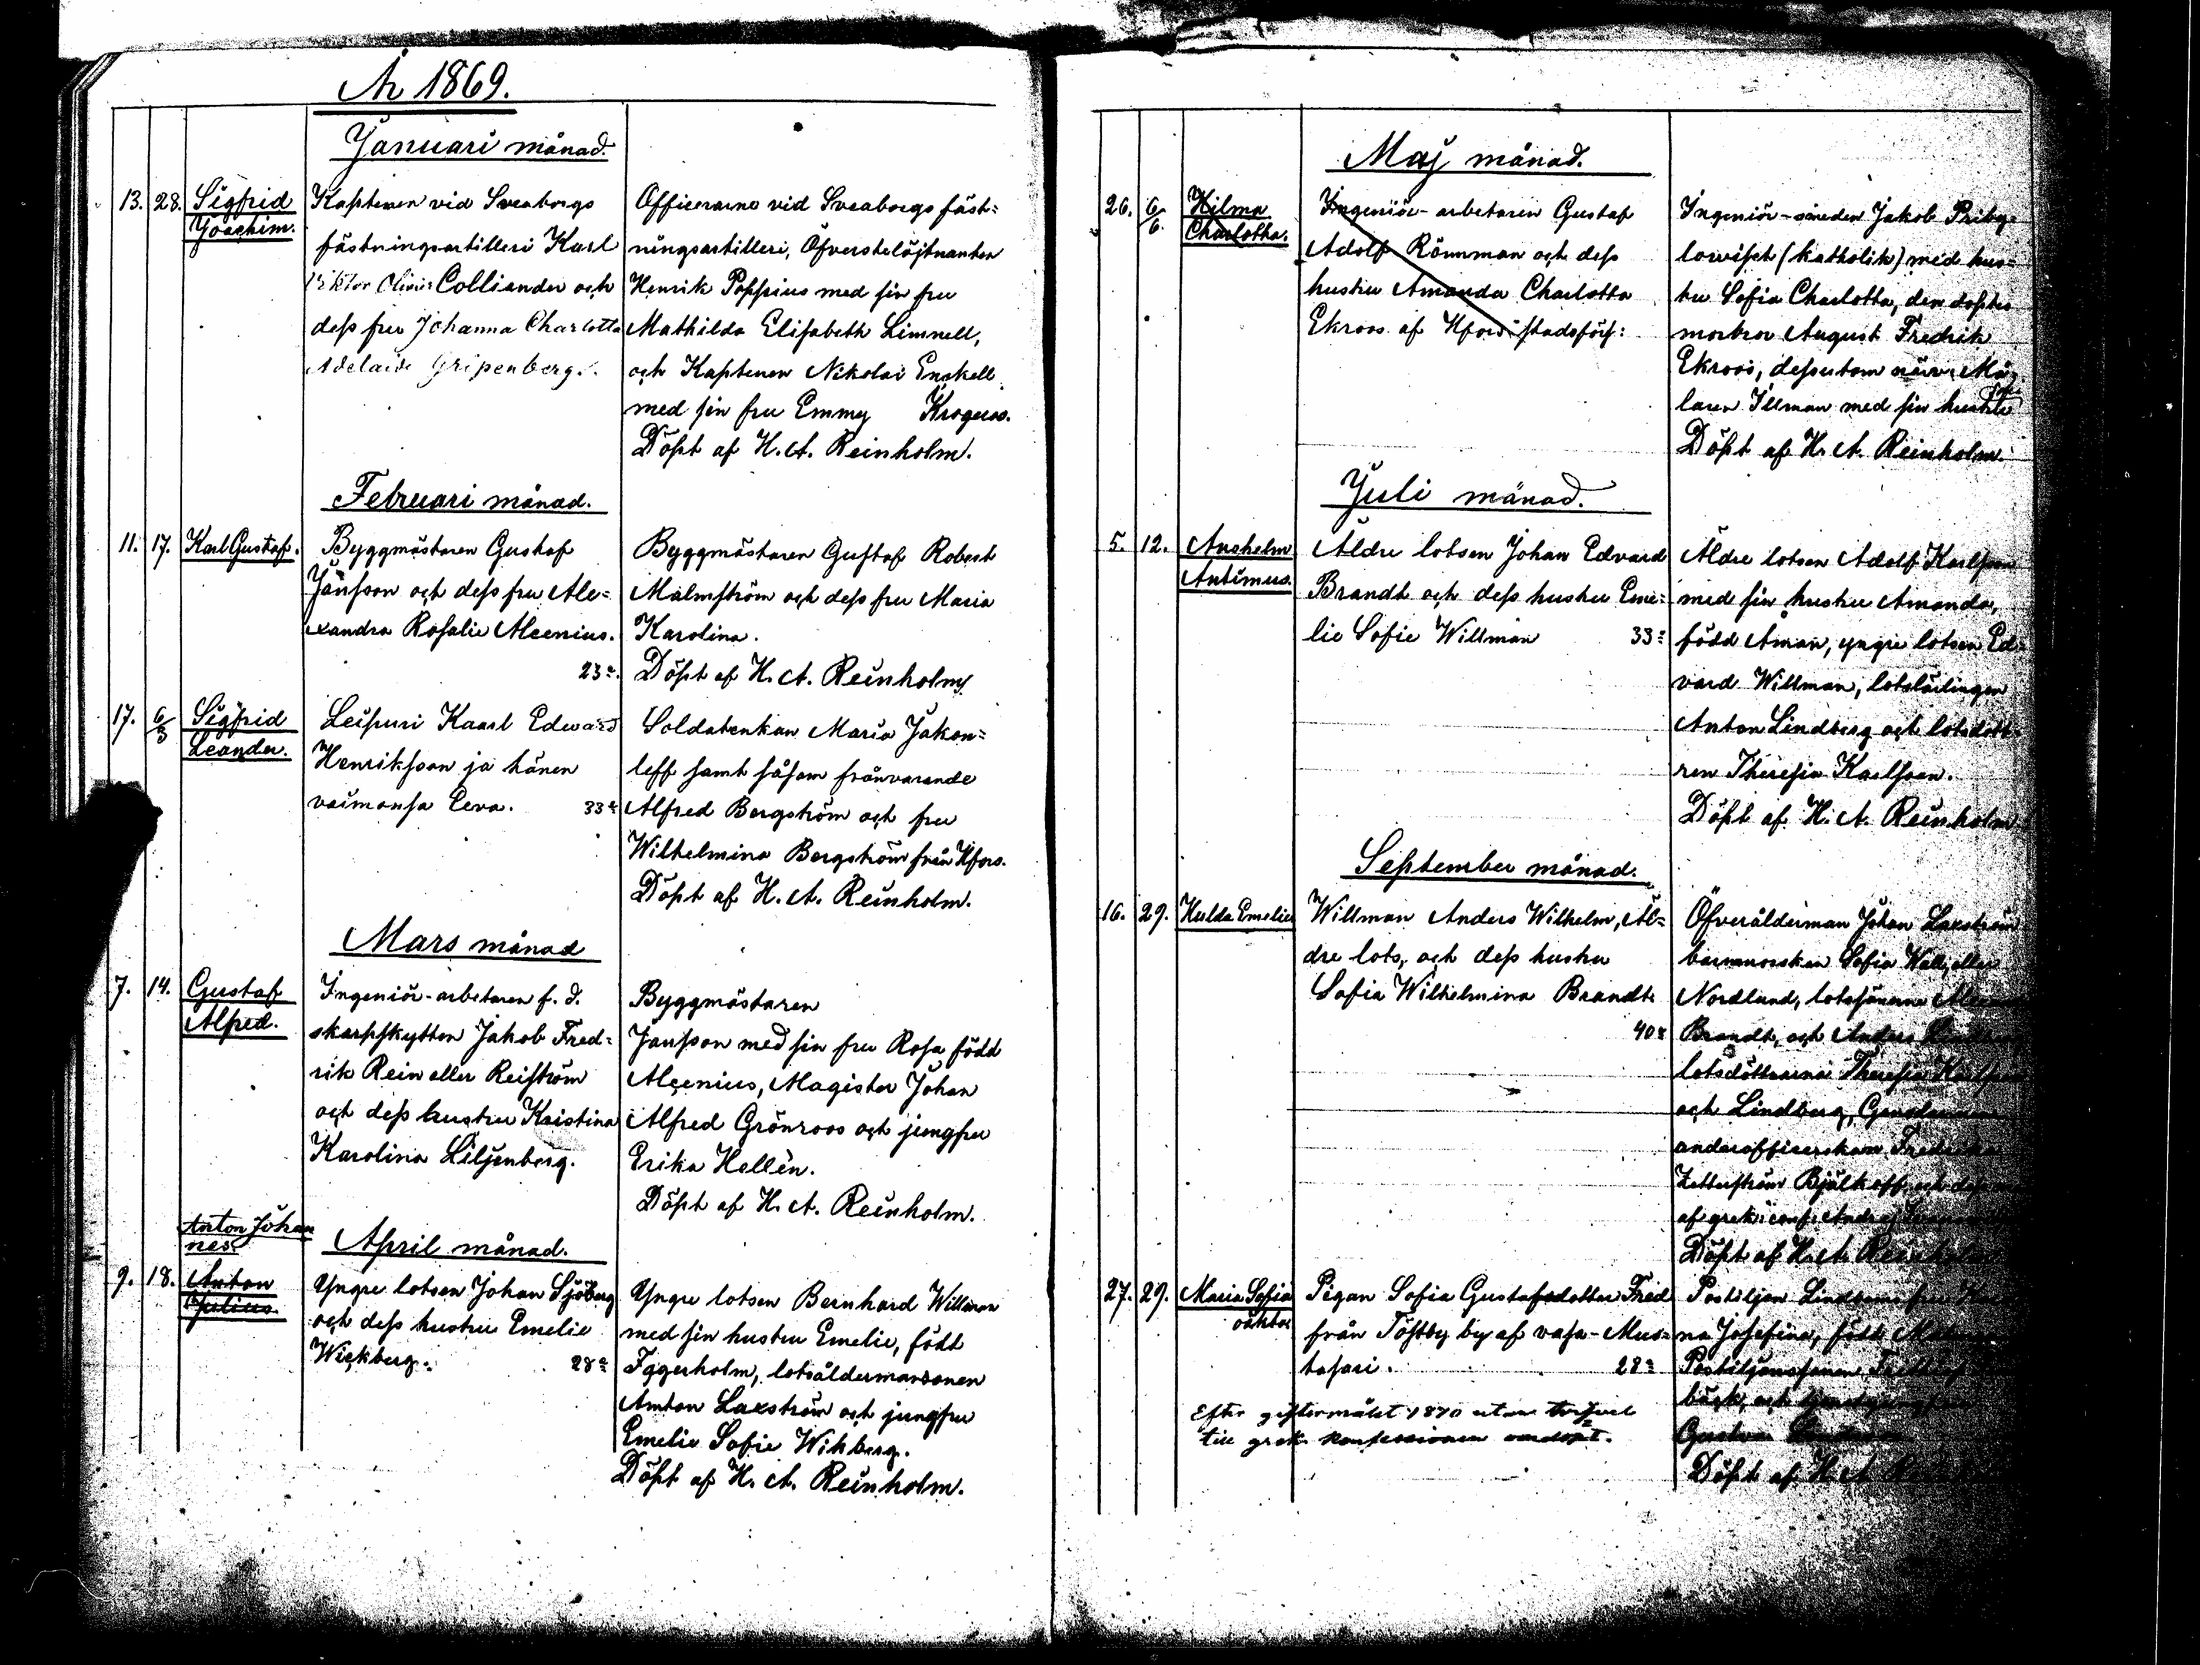 År 1869.
Januari månad.
13. 28. Sigfrid Joachim.
Kaptenen vid Sveaborgs
fästningsartilleri Karl
Viktor Olivier Colliander och
dess fru Johanna Charlotta
Adelaide Gripenberg.
Officerarne vid Sveaborgs fäst=
ningsartilleri, Öfverstelöjtnanten
Henrik Poppius med sin fru
Mathilda Elisabeth Limnell,
och Kaptenen Nikolai Enckell
med sin fru Emmy Krogerus.
Döpt af H. A. Reinholm.
Februari månad.
11. 17. Karl Gustaf.
Byggmästaren Gustaf
Jansson och dess fru Ale=
xandra Rosalie Alcenius.
23 a.
Byggmästaren Gustaf Robert
Malmström och dess fru Maria
Karolina.
Döpt af H. A. Reinholm
17. 6/3 Sigfrid Leander.
Leipuri Kaarl Edward
Henriksson ja hänen
vaimonsa Eeva. 33 a
Soldatenkan Maria Jakon=
leff samt såsom frånvarande
Alfred Bergström och fru
Wilhelmina Bergström från Hfors.
Döpt af H. A. Reinholm.
Mars månad
7. 14. Gustaf Alfred.
Ingeniör-arbetaren f. d.
skarpskytten Jakob Fred=
rik Rein eller Reiström
och dess hustru Kristina
Karolina Liljenberg.
Byggmästaren
Jansson med sin fru Rosa född
Alcenius, Magister Johan
Alfred Grönroos och jungfru
Erika Hellén.
Döpt af H. A. Reinholm.
April månad.
Anton Johan
nes
9. 18. Anton Julius.
Yngre lotsen Johan Sjöberg
och dess hustru Emelie
Wickberg. 28 a
Yngre lotsen Bernhard Willman
med sin hustru Emelie, född
Iggerholm, lotsåldermansonen
Anton Laxström och jungfru
Emelie Sofie Wikberg.
Döpt af H. A. Reinholm.
Maj månad.
26. 6/6 Hilma Charlotta.
Ingeniör-arbetaren Gustaf
Adolf Rönnman och dess
hustru Amanda Charlotta
Ekroos af Hfors stadsförs:
Ingeniör-smeden Jakob
(katholik) med hus=
tru Sofia Charlotta, den döptes
morbror August Fredrik
Ekroos, dessutom Må=
laren Illman med sin hustru
Döpt af H. A. Reinholm.
Juli månad.
5. 12. Anshelm Antimus.
Äldre lotsen Johan Edvard
Brandt och dess hustru Eme=
lie Sofie Willman 33 a
Äldre lotsen Adolf Karlsson
med sin hustru Amanda,
född Åman, yngre lotsen Ed=
vard Willman, lotslärlingen
Anton Lindberg och lotsdott=
ren Theresia Karlsson.
Döpt af H. A. Reinholm
September månad.
16. 29. Hulda Emelie
Willman Anders Wilhelm, Äl=
dre lots, och dess hustru
Sofia Wilhelmina Brandt
40 a
Öfverålderman Johan Laxström
barnmorskan Sofia Wall, eller
Nordlund, lotssönerna
Brandt, och Anders
lotsdöttrarna Theresia Karlsson
och Lindberg,
underofficerskan Fredrika
Zetterström Bjälkoff och
af grek: conf:
Döpt af H. A. Reinholm
27. 29. Maria Sofia
oäkta
Pigan Sofia Gustafsdotter Fred
från Töftby by af vasa-Mus=
tasari. 28 a
Efter giftermålet 1870 utan tvifvel
till grek. konfessionen omdöpt.
Postiljon Lindroos fru
na Josefina, född
Postiljonssonen
bäck, och
Gustava
Döpt af H. A.